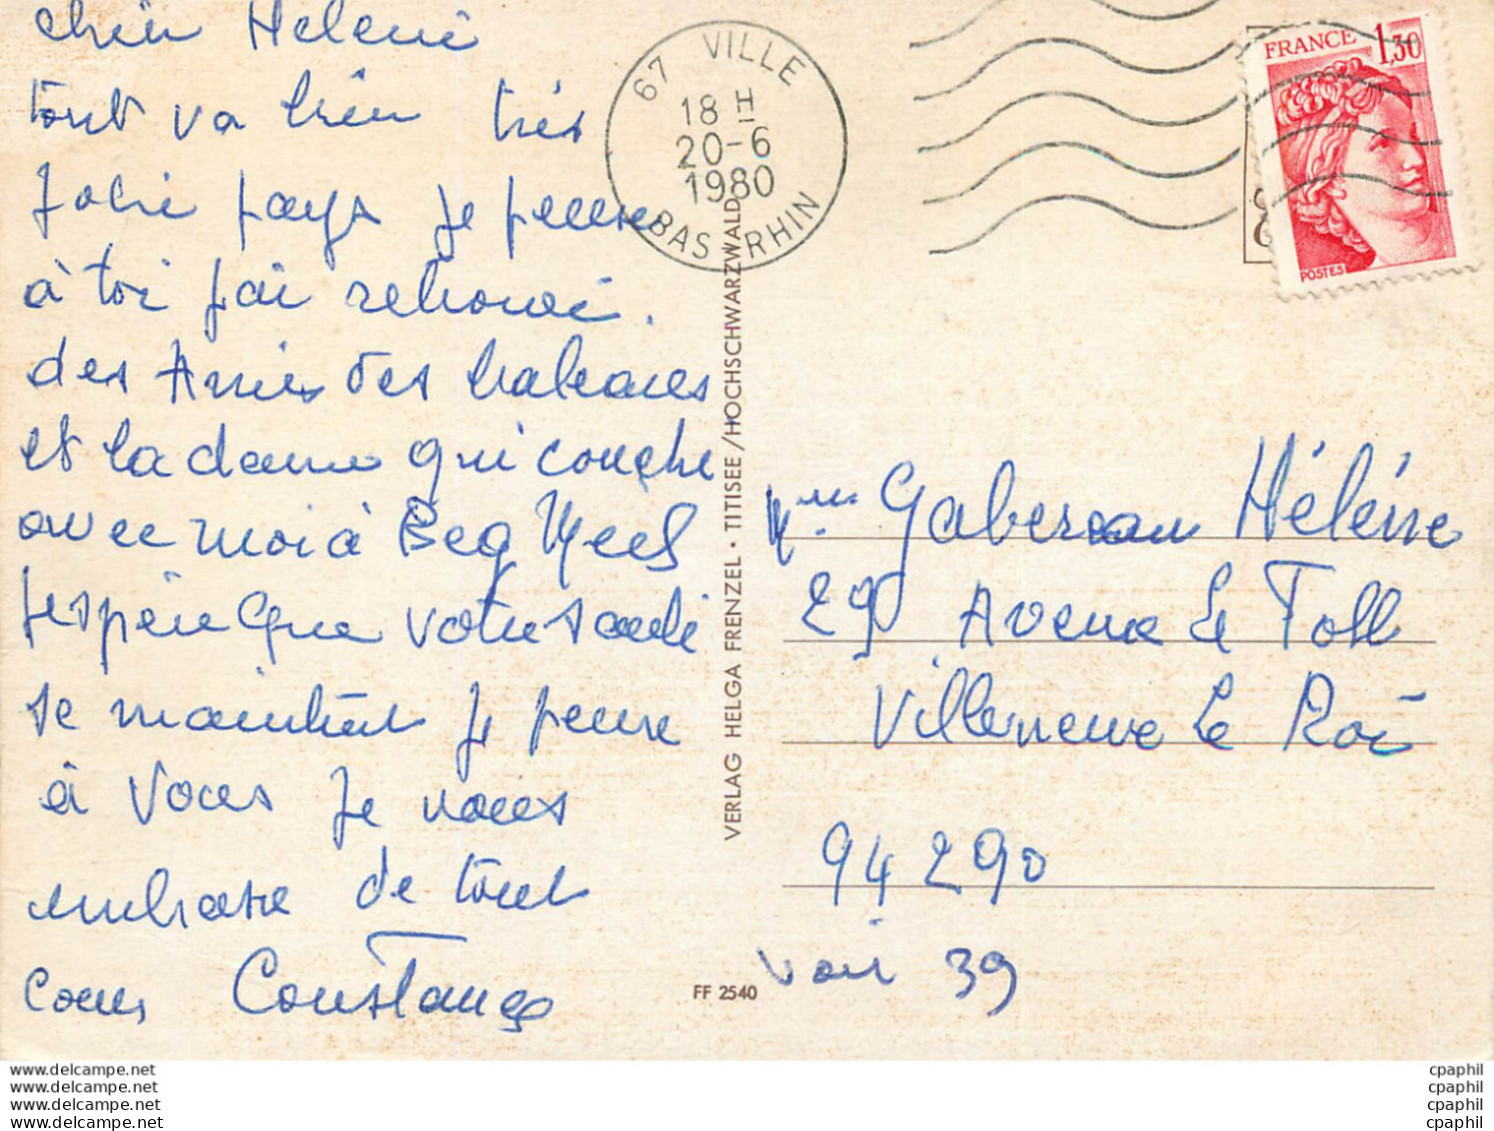 chère Helene
tout va bien très
jolie pays je pense
à toi j'ai retrouvé
des Amies des baleares
et la dame qui couche
avec moi à Beg Meil
j'espère que votre santé
se maintient je pense
à vous je vous
embrasse de tout
coeur Constance
67 VILLE
18 H
20-6
1980
BAS RHIN
VERLAG HELGA FRENZEL · TITISEE/HOCHSCHWARZWALD
FF 2540
FRANCE 1,30
POSTES
Mme Gabereau Hélène
29 Avenue Le Foll
Villeneuve Le Roi
94290
voir 39
www.delcampe.net
www.delcampe.net
www.delcampe.net
www.delcampe.net
cpaphil
cpaphil
cpaphil
cpaphil